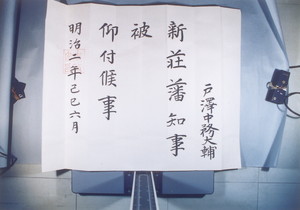 戸澤中務大輔
新荘藩知事
被
仰付候事
明治二年己巳六月